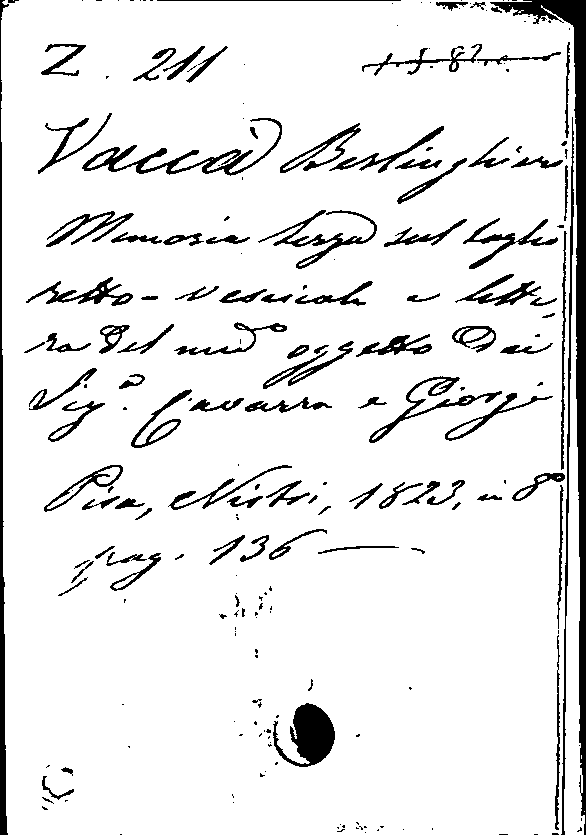 Z. 211 1.5.87.c.
Vaccà Berlinghieri
Memoria terza sul taglio
retto-vescicale e lette,
ra del med° oggetto Dai
Sig.ri Cavarra e Giorgi
Pisa, Nistri, 1823, in 8°
pag. 136 —